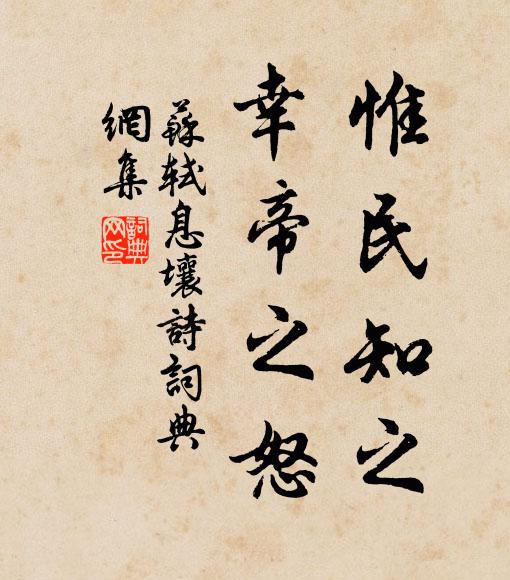 惟民知之
幸帝之怒
蘇軾息壤詩詞典
網集
詞典
网印